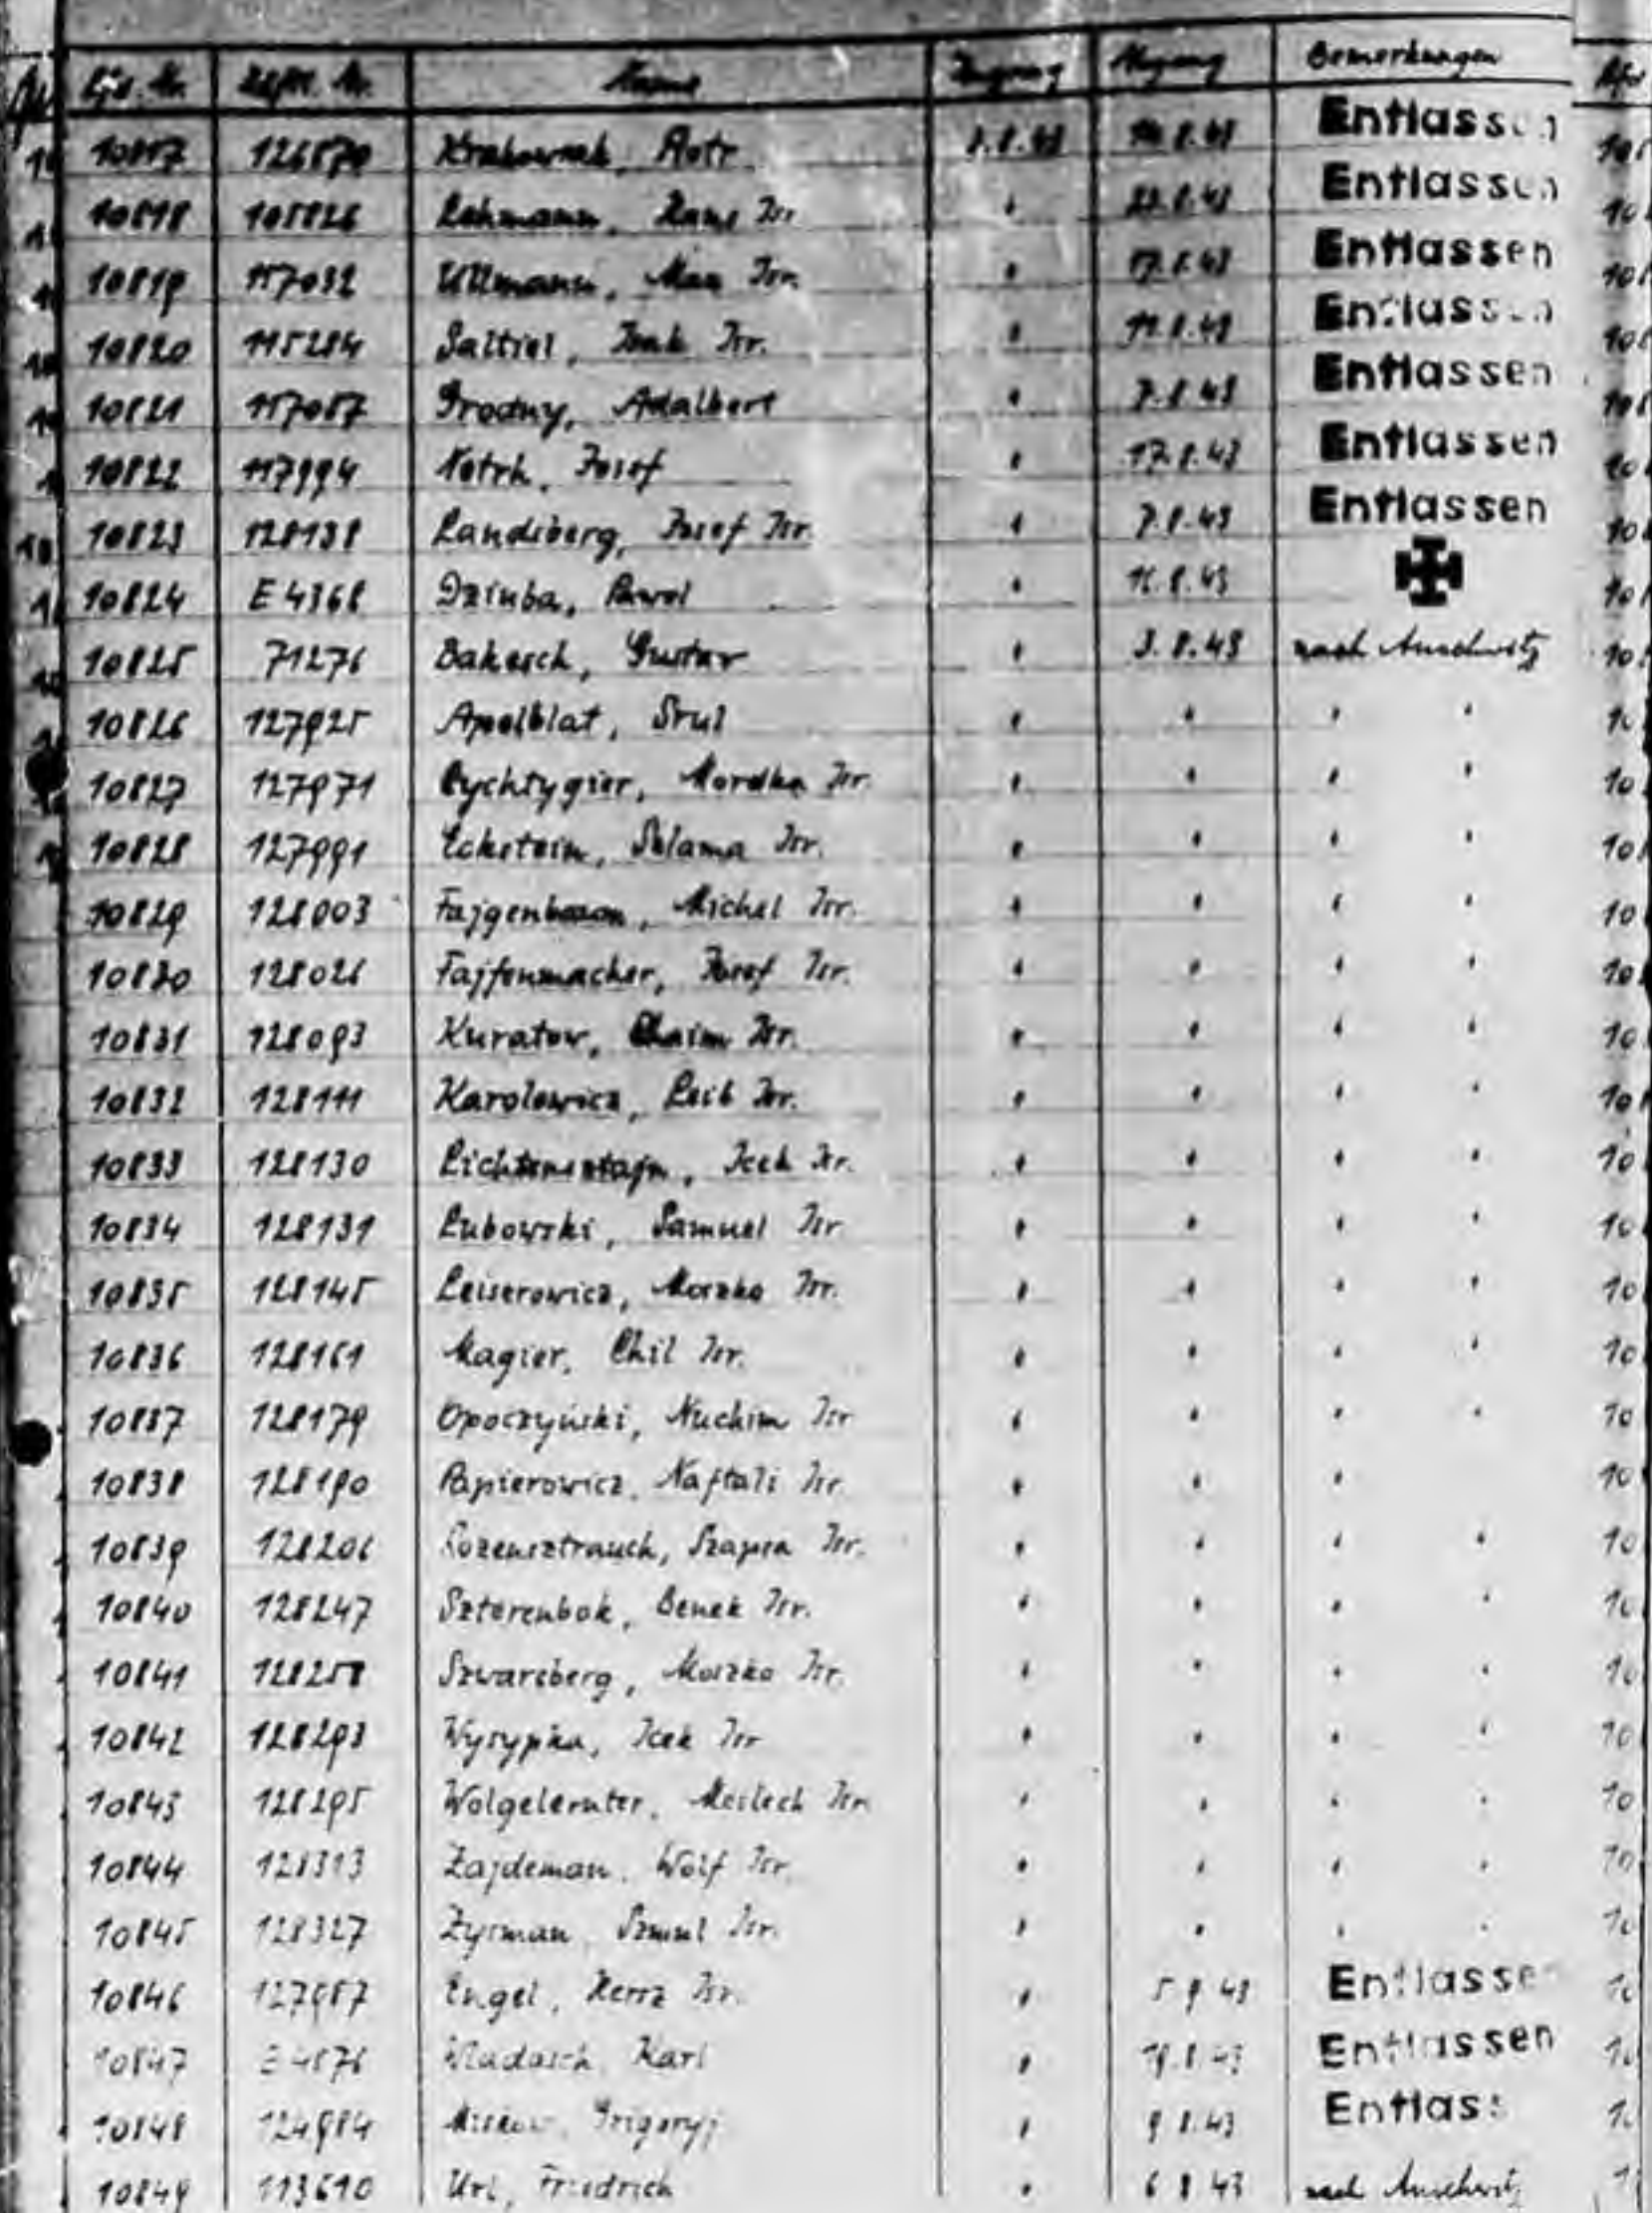 Lfd. Nr. Häftl. Nr. Name Zugang Abgang Bemerkungen
10817 126570 Piotr 3.8.43 Entlassen
10818 105826 Lehmann, Hans Isr. " 23.8.43 Entlassen
10819 117032 Ullmann, Max Isr. " 17.8.43 Entlassen
10820 115284 Saltiel, Isak Isr. " 11.8.43 Entlassen
10821 117087 Brodny, Adalbert " 7.8.43 Entlassen
10822 117994 Josef " 17.8.43 Entlassen
10823 128138 Landsberg, Josef Isr. " 7.8.43 Entlassen
10824 E 4368 Dziuba, Pawel " 16.8.43
10825 71276 Bakesch, Gustav " 3.8.43 nach Auschwitz
10826 127925 Apelblat, Srul " " " "
10827 127971 Cychtygier, Mordka Isr. " " " "
10828 127991 Eckstein, Salama Isr. " " " "
10829 128003 Fajgenbaum, Michel Isr. " " " "
10830 128026 Fajfenmacher, Josef Isr. " " " "
10831 128093 Kuratow, Chaim Isr. " " " "
10832 128111 Karolowicz, Leib Isr. " " " "
10833 128130 Lichtensztajn, Icek Isr. " " " "
10834 128131 Lubowski, Samuel Isr. " " " "
10835 128145 Leiserowicz, Moszko Isr. " " " "
10836 128161 Magier, Chil Isr. " " " "
10837 128179 Opoczyński, Nuchim Isr. " " " "
10838 128190 Papierowicz, Naftali Isr. " " "
10839 128206 Rozensztrauch, Szapsa Isr. " " " "
10840 128247 Szterenbok, Benek Isr. " " " "
10841 128258 Szwarcberg, Moszko Isr. " " " "
10842 128293 Wysypka, Icek Isr. " " " "
10843 128295 Wolgelernter, Meilech Isr. " " " "
10844 128313 Zajdeman, Wolf Isr. " " " "
10845 128327 Zysman, Szmul Isr. " " " "
10846 127987 Engel, Hersz Isr. " 5.9.43 Entlassen
10847 E 4876 Wladasch, Karl " 19.8.43 Entlassen
10848 124984 Grigoryj " 9.8.43 Entlass
10849 113610 Url, Friedrich " 6.8.43 nach Auschwitz